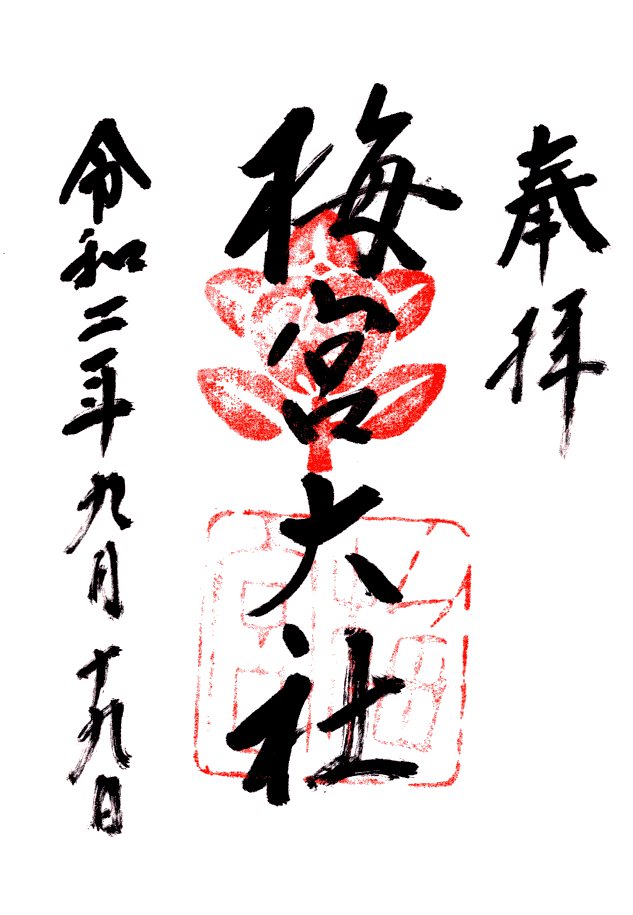 奉拝
梅宮大社
令和二年九月十九日